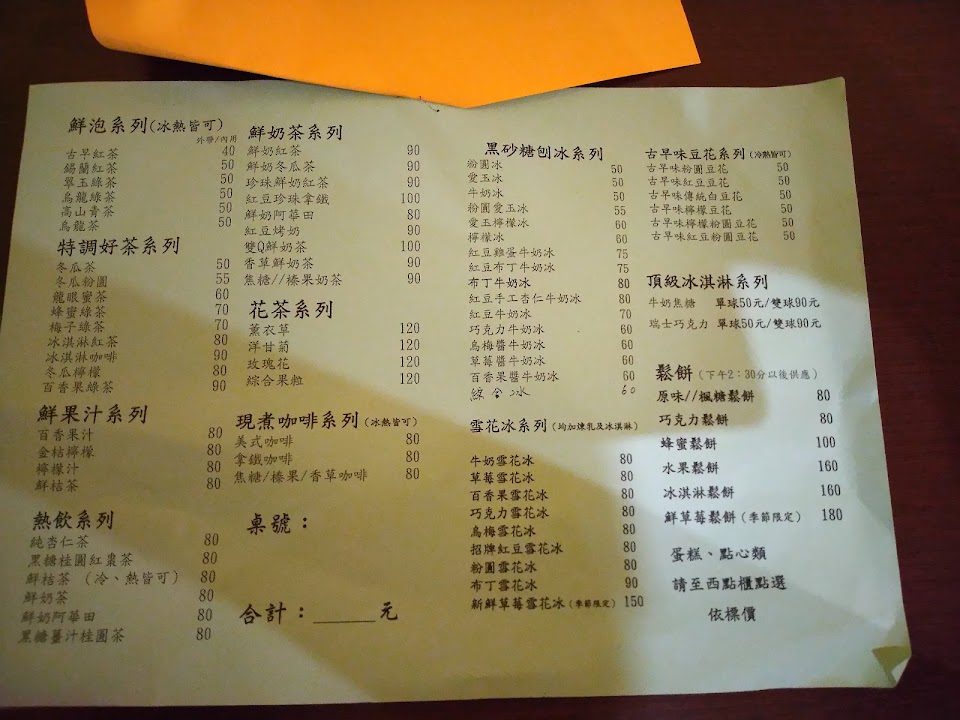 鮮泡系列(冰熱皆可)
外帶/內用
古早紅茶 40
錫蘭紅茶 50
翠玉綠茶 50
烏龍綠茶 50
高山青茶 50
烏龍茶 50
特調好茶系列
冬瓜茶 50
冬瓜粉圓 55
龍眼蜜茶 60
蜂蜜綠茶 70
梅子綠茶 70
冰淇淋紅茶 80
冰淇淋咖啡 90
冬瓜檸檬 80
百香果綠茶 90
鮮果汁系列
百香果汁 80
金桔檸檬 80
檸檬汁 80
鮮桔茶 80
熱飲系列
純杏仁茶 80
黑糖桂圓紅棗茶 80
鮮桔茶 (冷、熱皆可) 80
鮮奶茶 80
鮮奶阿華田 80
黑糖薑汁桂圓茶 80
鮮奶茶系列
鮮奶紅茶 90
鮮奶冬瓜茶 90
珍珠鮮奶紅茶 90
紅豆珍珠拿鐵 100
鮮奶阿華田 80
紅豆烤奶 90
雙Q鮮奶茶 100
香草鮮奶茶 90
焦糖//榛果奶茶 90
花茶系列
薰衣草 120
洋甘菊 120
玫瑰花 120
綜合果粒 120
現煮咖啡系列(冰熱皆可)
美式咖啡 80
拿鐵咖啡 80
焦糖/榛果/香草咖啡 80
桌號：
合計：______元
黑砂糖刨冰系列
粉圓冰 50
愛玉冰 50
牛奶冰 50
粉圓愛玉冰 55
愛玉檸檬冰 60
檸檬冰 60
紅豆雞蛋牛奶冰 75
紅豆布丁牛奶冰 75
布丁牛奶冰 80
紅豆手工杏仁牛奶冰 80
紅豆牛奶冰 70
巧克力牛奶冰 60
烏梅醬牛奶冰 60
草莓醬牛奶冰 60
百香果醬牛奶冰 60
綜合冰 60
雪花冰系列(均加煉乳及冰淇淋)
牛奶雪花冰 80
草莓雪花冰 80
百香果雪花冰 80
巧克力雪花冰 80
烏梅雪花冰 80
招牌紅豆雪花冰 80
粉圓雪花冰 80
布丁雪花冰 90
新鮮草莓雪花冰(季節限定) 150
古早味豆花系列(冷熱皆可)
古早味粉圓豆花 50
古早味紅豆豆花 50
古早味傳統白豆花 50
古早味檸檬豆花 50
古早味檸檬粉圓豆花 50
古早味紅豆粉圓豆花 50
頂級冰淇淋系列
牛奶焦糖 單球50元/雙球90元
瑞士巧克力 單球50元/雙球90元
鬆餅(下午2：30分以後供應)
原味//楓糖鬆餅 80
巧克力鬆餅 80
蜂蜜鬆餅 100
水果鬆餅 160
冰淇淋鬆餅 160
鮮草莓鬆餅(季節限定) 180
蛋糕、點心類
請至西點櫃點選
依標價